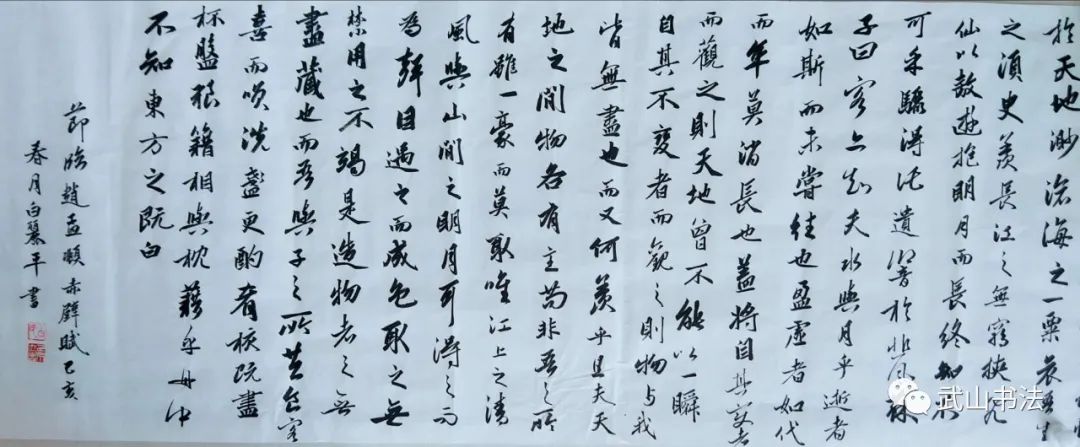 於天地渺滄海之一粟哀吾生
之須臾羨長江之無窮挾飛
仙以遨遊抱明月而長終知不
可乎驟得託遺響於悲風蘇
子曰客亦知夫水與月乎逝者
如斯而未嘗往也盈虛者如代
而卒莫消長也蓋將自其變者
而觀之則天地曾不能以一瞬
自其不變者而觀之則物与我
皆無盡也而又何羨乎且夫天
地之間物各有主苟非吾之所
有雖一豪而莫取唯江上之清
風與山間之明月耳得之而
為聲目遇之而成色取之無
禁用之不竭是造物者之無
盡藏也而吾與子之所共食客
喜而笑洗盞更酌肴核既盡
杯盤狼籍相與枕藉乎舟中
不知東方之既白
節臨趙孟頫赤壁賦己亥
春月白平書
武山书法